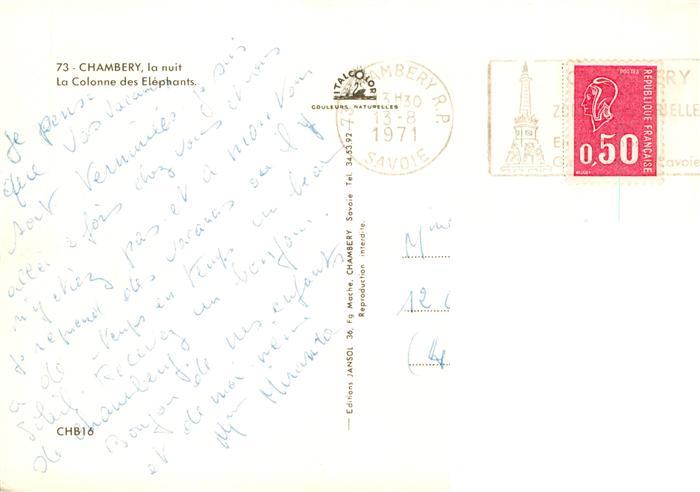 73 - CHAMBERY, la nuit
La Colonne des Eléphants.
Je pense
que vos vacances
sont terminées je suis
allée 2 fois chez vous et vous
n'y étiez pas et à mon tour
je reprend des vacances ou il y
a de temps en temps un beau
soleil. Recevez un bonjour
de Chambery
Bonjour de mes enfants
et de moi même
Mme Miranda
CHB16
ITALCOLOR
COULEURS NATURELLES
CHAMBERY R.P.
73
13H30
13-8
1971
SAVOIE
POSTES
REPUBLIQUE FRANÇAISE
0,50
Savoie
— Editions JANSOL 36, Fg Mache, CHAMBERY Savoie Tel. 34.53.92
Reproduction interdite.
Mme
12